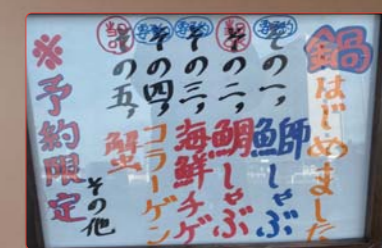 鍋はじめました
その一、鰤しゃぶ
その二、鯛しゃぶ
その三、海鮮チゲ
その四、コラーゲン
その五、蟹
その他
※予約限定